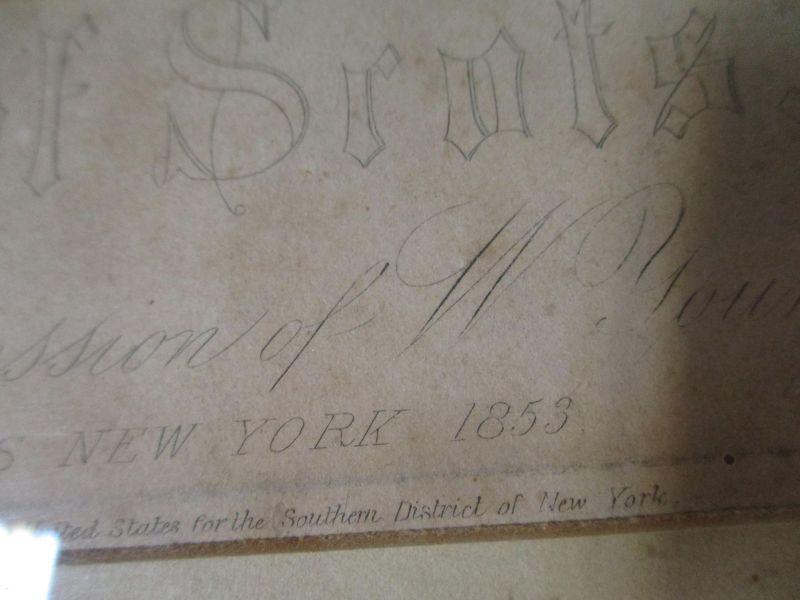 of Scots.
ssion of W Youn
S NEW YORK 1853
United States for the Southern District of New York.